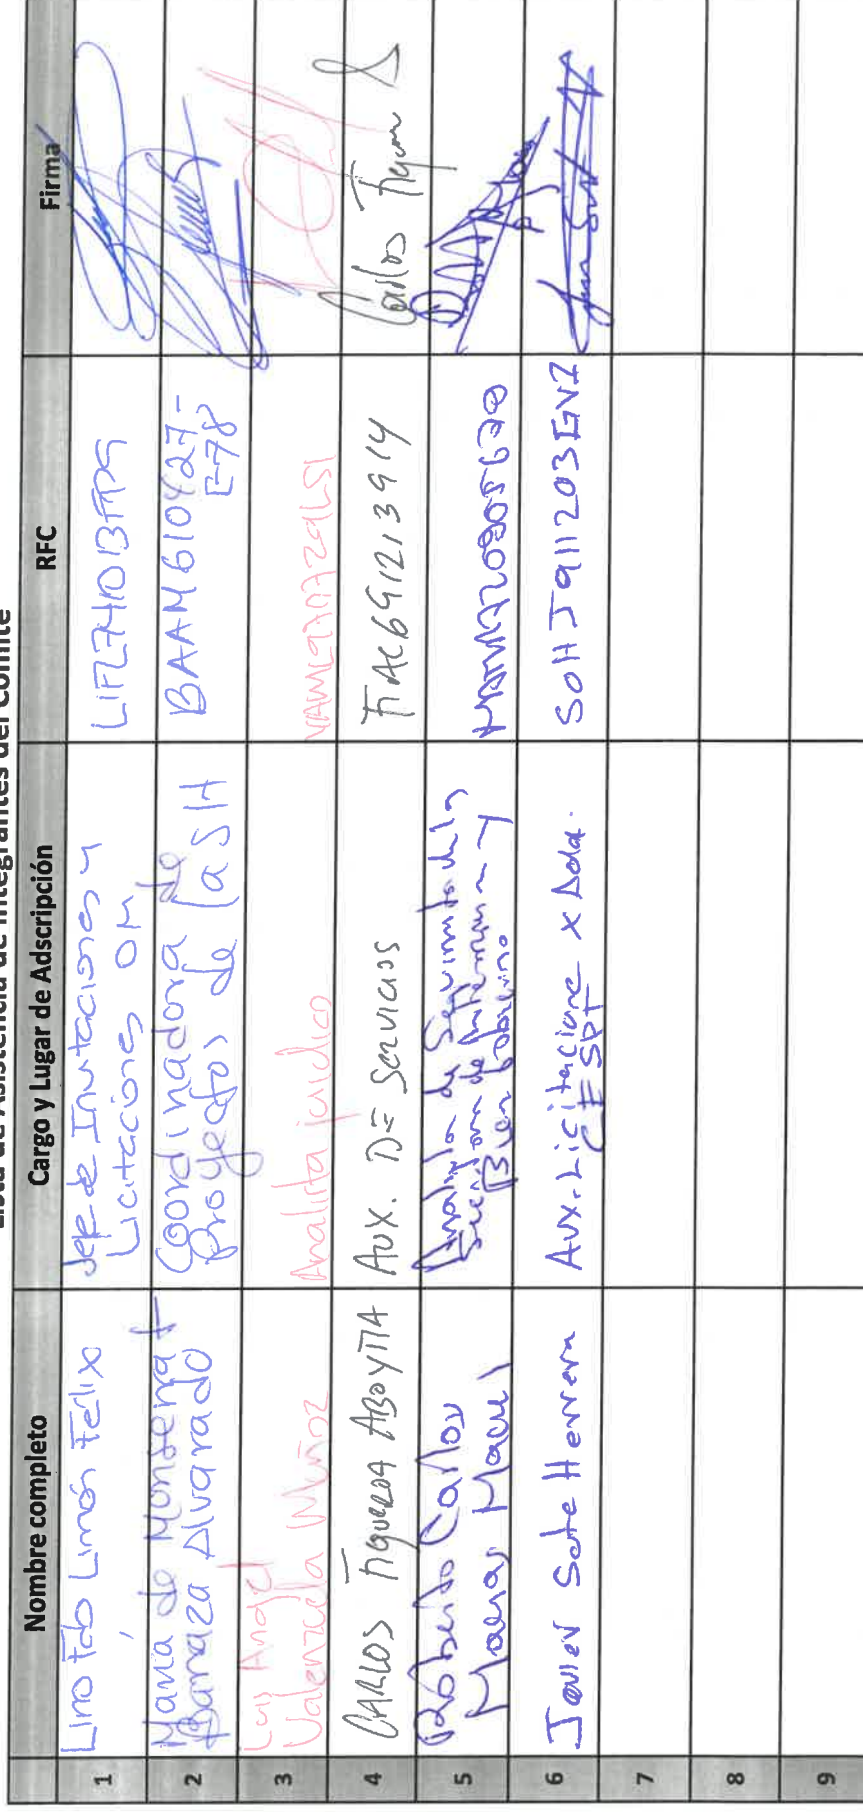 Lista de Asistencia de Integrantes del Comité
Nombre completo Cargo y Lugar de Adscripción RFC Firma
1 Lino Fab Limón Felix Jefe de Invitaciones y
Licitaciones OM
2 María de Monserrat
Barraza Alvarado Coordinadora de
Proyectos de la SH BAAM610427-
E78
3 Luis Angel
Valenzuela Muñoz Analista jurídico VAML970729LS1
4 CARLOS FIGUEROA ABOYTIA AUX. DE SERVICIOS FIAC691213914 Carlos Figueroa
5 Roberto Carlos
Macias Analista de Seguimiento de la
Bien
6 Javier Soto Herrera Aux. Licitacione x Adq.
CESPT SOHJ911203GV2
7
8
9